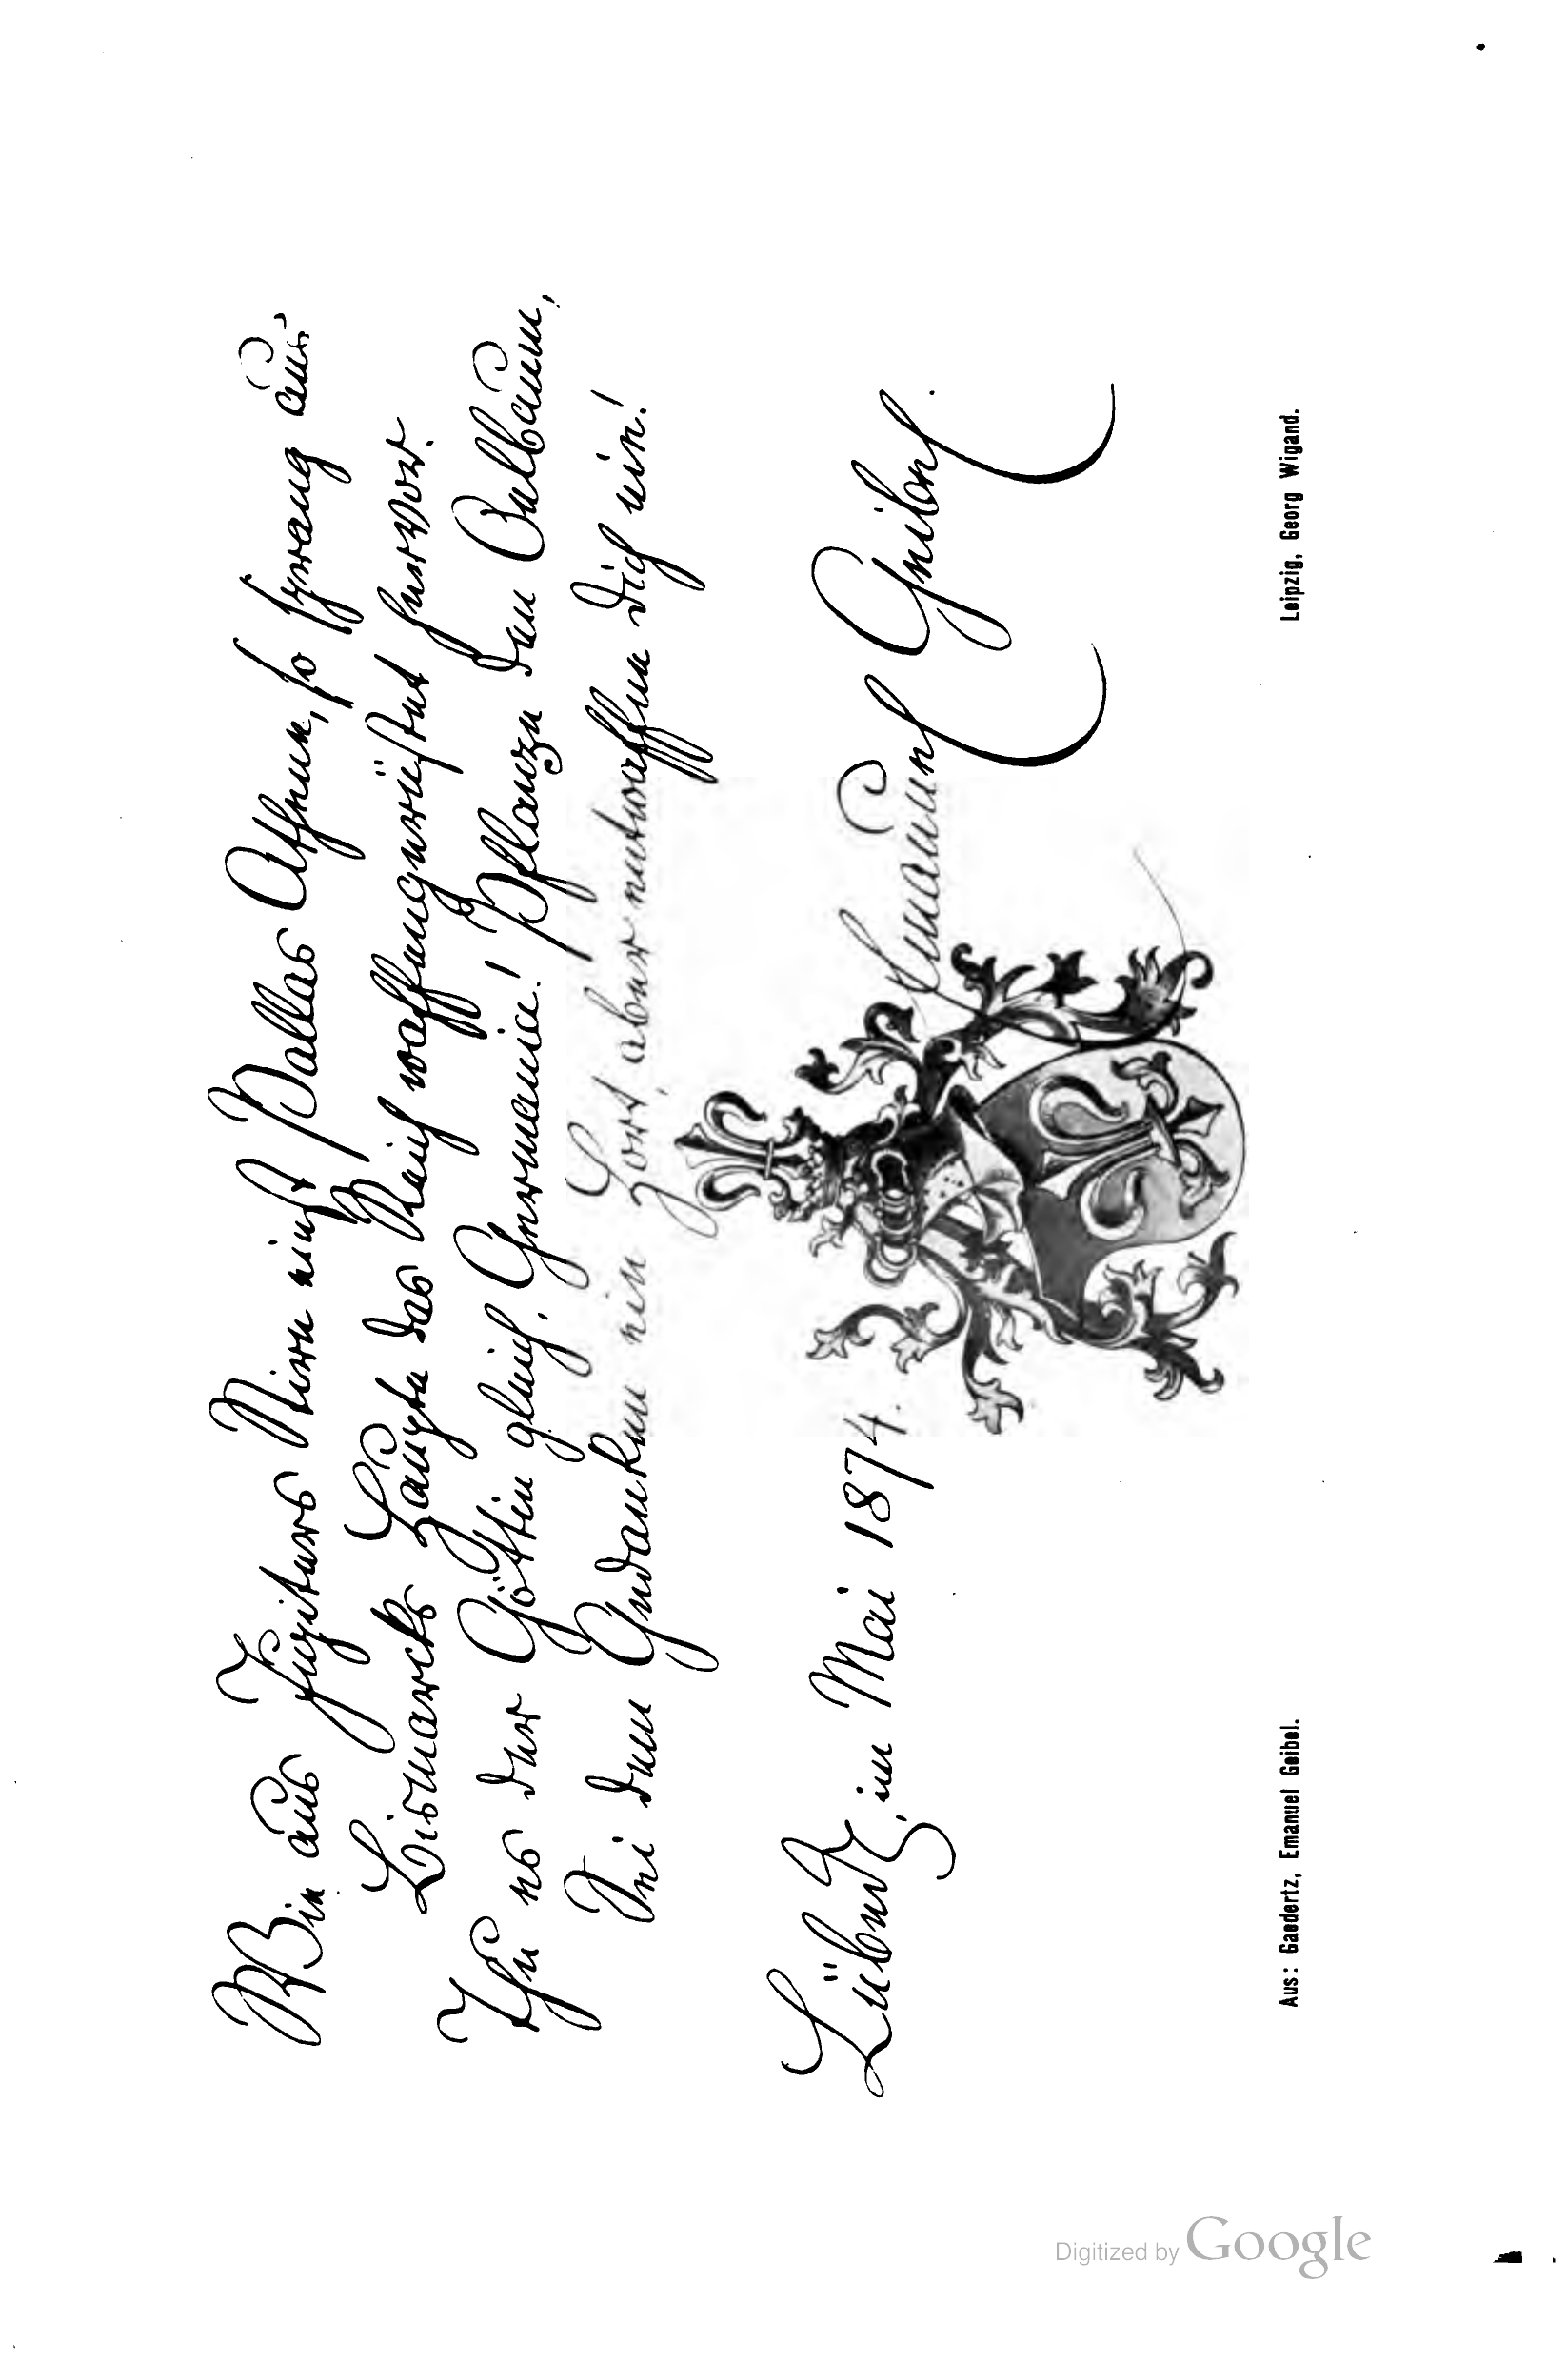 Wie aus Jupiters Stirn einst Pallas Athene, so sprang aus
Bismarcks Haupte das Reich waffengerüstet hervor.
Thu es der Göttin gleich, Germania! Pflanze den Oelbaum,
Sei dem Gedanken ein Hort, aber entwaffne dich nie!
Lübeck, im Mai 1874.
Emanuel Geibel.
Aus: Gaedertz, Emanuel Geibel.
Leipzig, Georg Wigand.
Digitized by Google